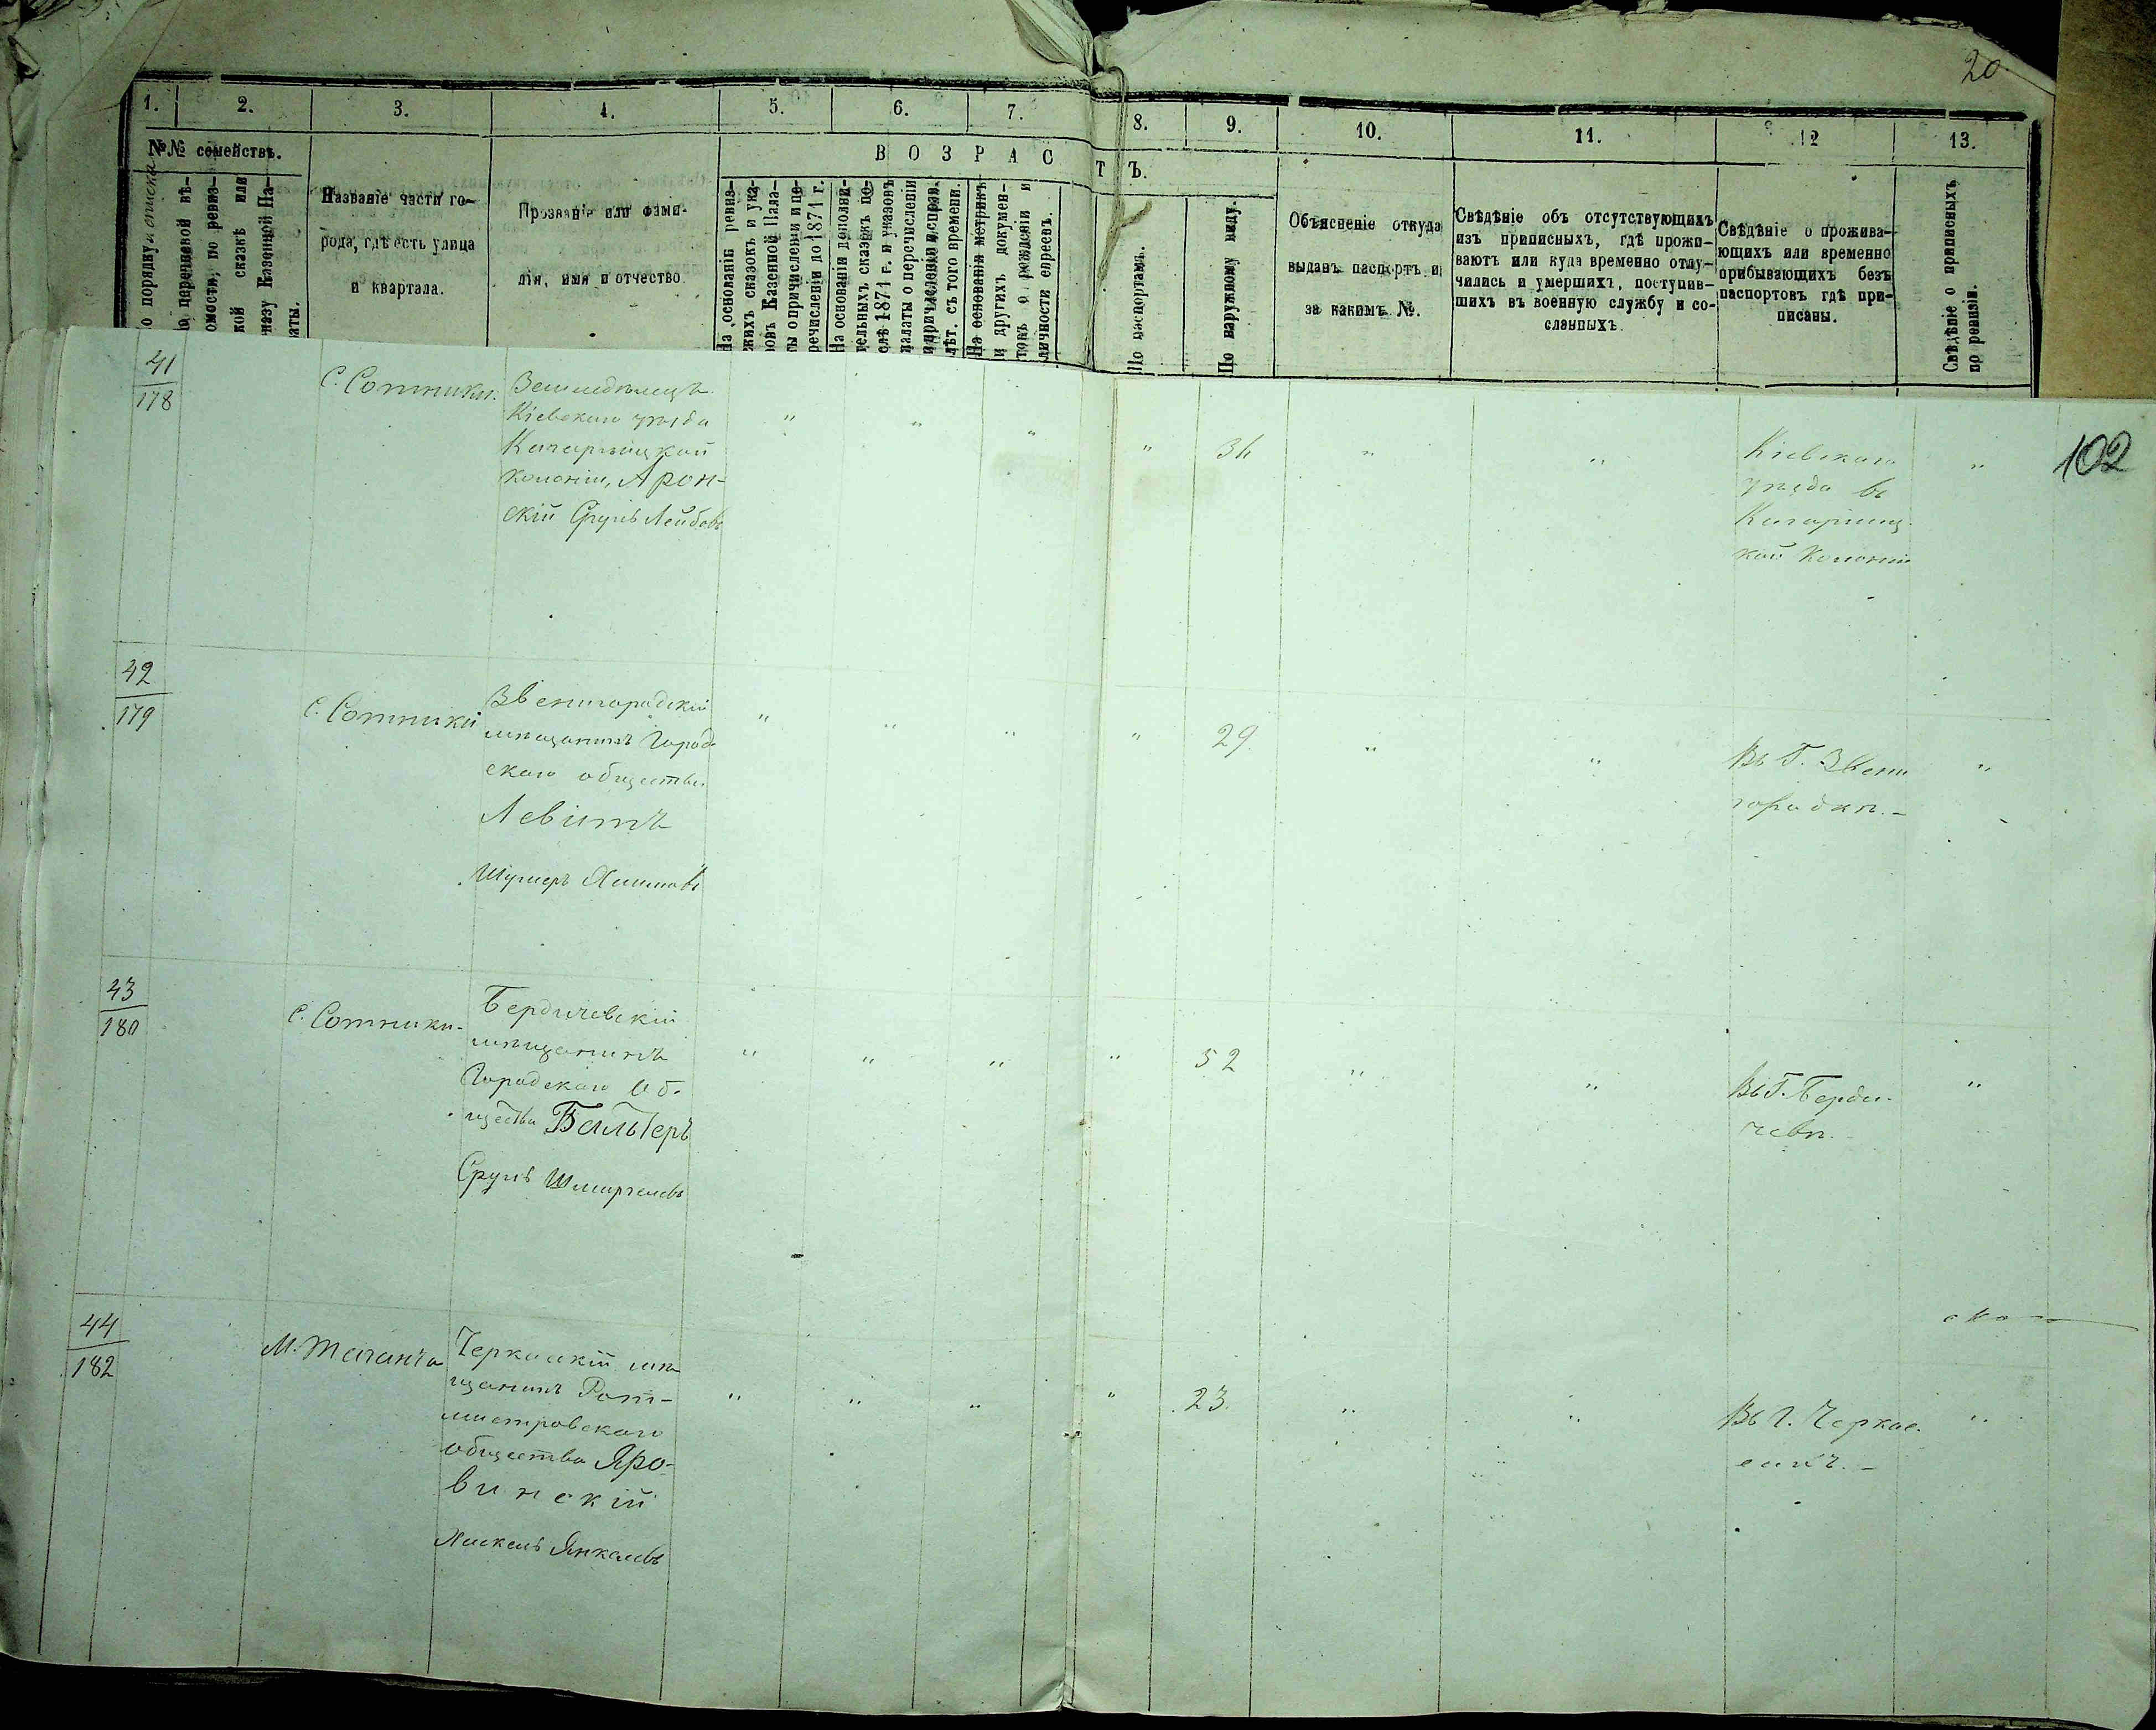 20
1. 2. 3. 4. 5. 6. 7. 8. 9. 10. 11. 12 13.
№№ семействъ.
В О З Р А С Т Ъ.
о порядку
по перечневой вѣ-
омости, по ревиз-
кой сказкѣ или
казу Казенной Па-
латы.
Названіе части го-
рода, гдѣ есть улица
и квартала.
Прозваніе или фами-
лія, имя и отчество
На основаніѣ ревиз-
жихъ сказокъ и ука-
зовъ Казенной Пала-
ты о причисленіи и пе-
речисленіи до 1871 г.
На основаніи дополни-
тельныхъ сказокъ по-
слѣ 1871 г. и указовъ
палаты о перечисленіи
и причисленіи и справ.
лѣт. съ того времени.
На основаніи метрикъ
и другихъ докумен-
товъ о рожденіи и
личности евреевъ.
По паспортамъ.
По наружному виду.
Объясненіе откуда
выданъ паспортъ и
за какимъ №.
Свѣдѣніе объ отсутствующихъ
изъ приписныхъ, гдѣ прожи-
ваютъ или куда временно отлу-
чились и умершихъ, поступив-
шихъ въ военную службу и со-
сланныхъ.
Свѣдѣніе о прожива-
ющихъ или временно
прибывающихъ безъ
паспортовъ гдѣ при-
писаны.
Свѣдѣніе о приписныхъ
по ревизіи.
41
178
С. Сотники.
Земледѣлецъ
Кіевскаго уѣзда
Кагарлицкой
колоніи, Арон-
скій Сруль Лейбовъ
" " " " 36 " "
Кіевскаго
уѣзда въ
Кагарлиц-
кой Колоніи
"
102
42
179
С. Сотники
Звенигородскій
мѣщанинъ Город-
скаго общества
Левитъ
Шулимъ Хаимовъ
" " " " 29. " "
Въ Г. Звени
городкѣ.-
"
43
180
С. Сотники-
Бердичевскій
мѣщанинъ
Городскаго Об-
щества Бальтеръ
Сруль
" " " " 52 " "
Въ Г. Берди-
чевѣ.
"
44
182
М. Таганча
Черкасскій мѣ
щанинъ Рот-
мистровскаго
общества Яро-
винскій
Хаскель Янкелевъ
" " " " 23. " "
Въ Г. Черкас-
сахъ.-
"